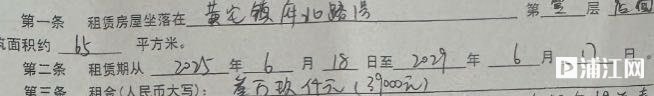 第一条 租赁房屋坐落在 黄宅镇府北路1号 第 壹 层 后间
筑面积约 65 平方米。
第二条 租赁期从 2025 年 6 月 18 日至 2029 年 6 月 17 日。
第三条 租金(人民币大写): 叁万玖仟元(39000元)
浦江网